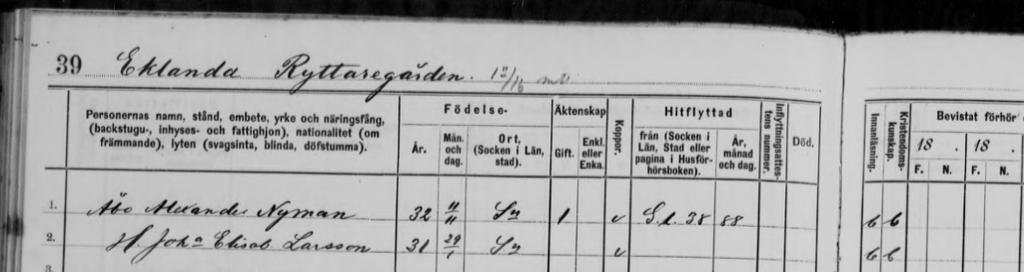 39 Eklanda Ryttaregården. 12/16 mtl
Personernas namn, stånd, embete, yrke och näringsfång, (backstugu-, inhyses- och fattighjon), nationalitet (om främmande), lyten (svagsinta, blinda, döfstumma).
Födelse-
År.
Mån. och dag.
Ort, (Socken i Län, stad).
Äktenskap
Gift.
Enkl. eller Enka.
Koppor.
Hitflyttad
från (Socken i Län, Stad eller pagina i Husförhörsboken).
År, månad och dag.
Inflyttningsattestens nummer.
Död.
Innanläsning.
Kristendomskunskap.
Bevistat förhör
18 . 18 .
F. N. F. N.
1. Åbo Alexander Nyman 32 11/11 Sn 1 v G.l. 38 88 6 6
2. H. Joha Elisab. Larsson 31 29/1 Sn v 6 6
3.